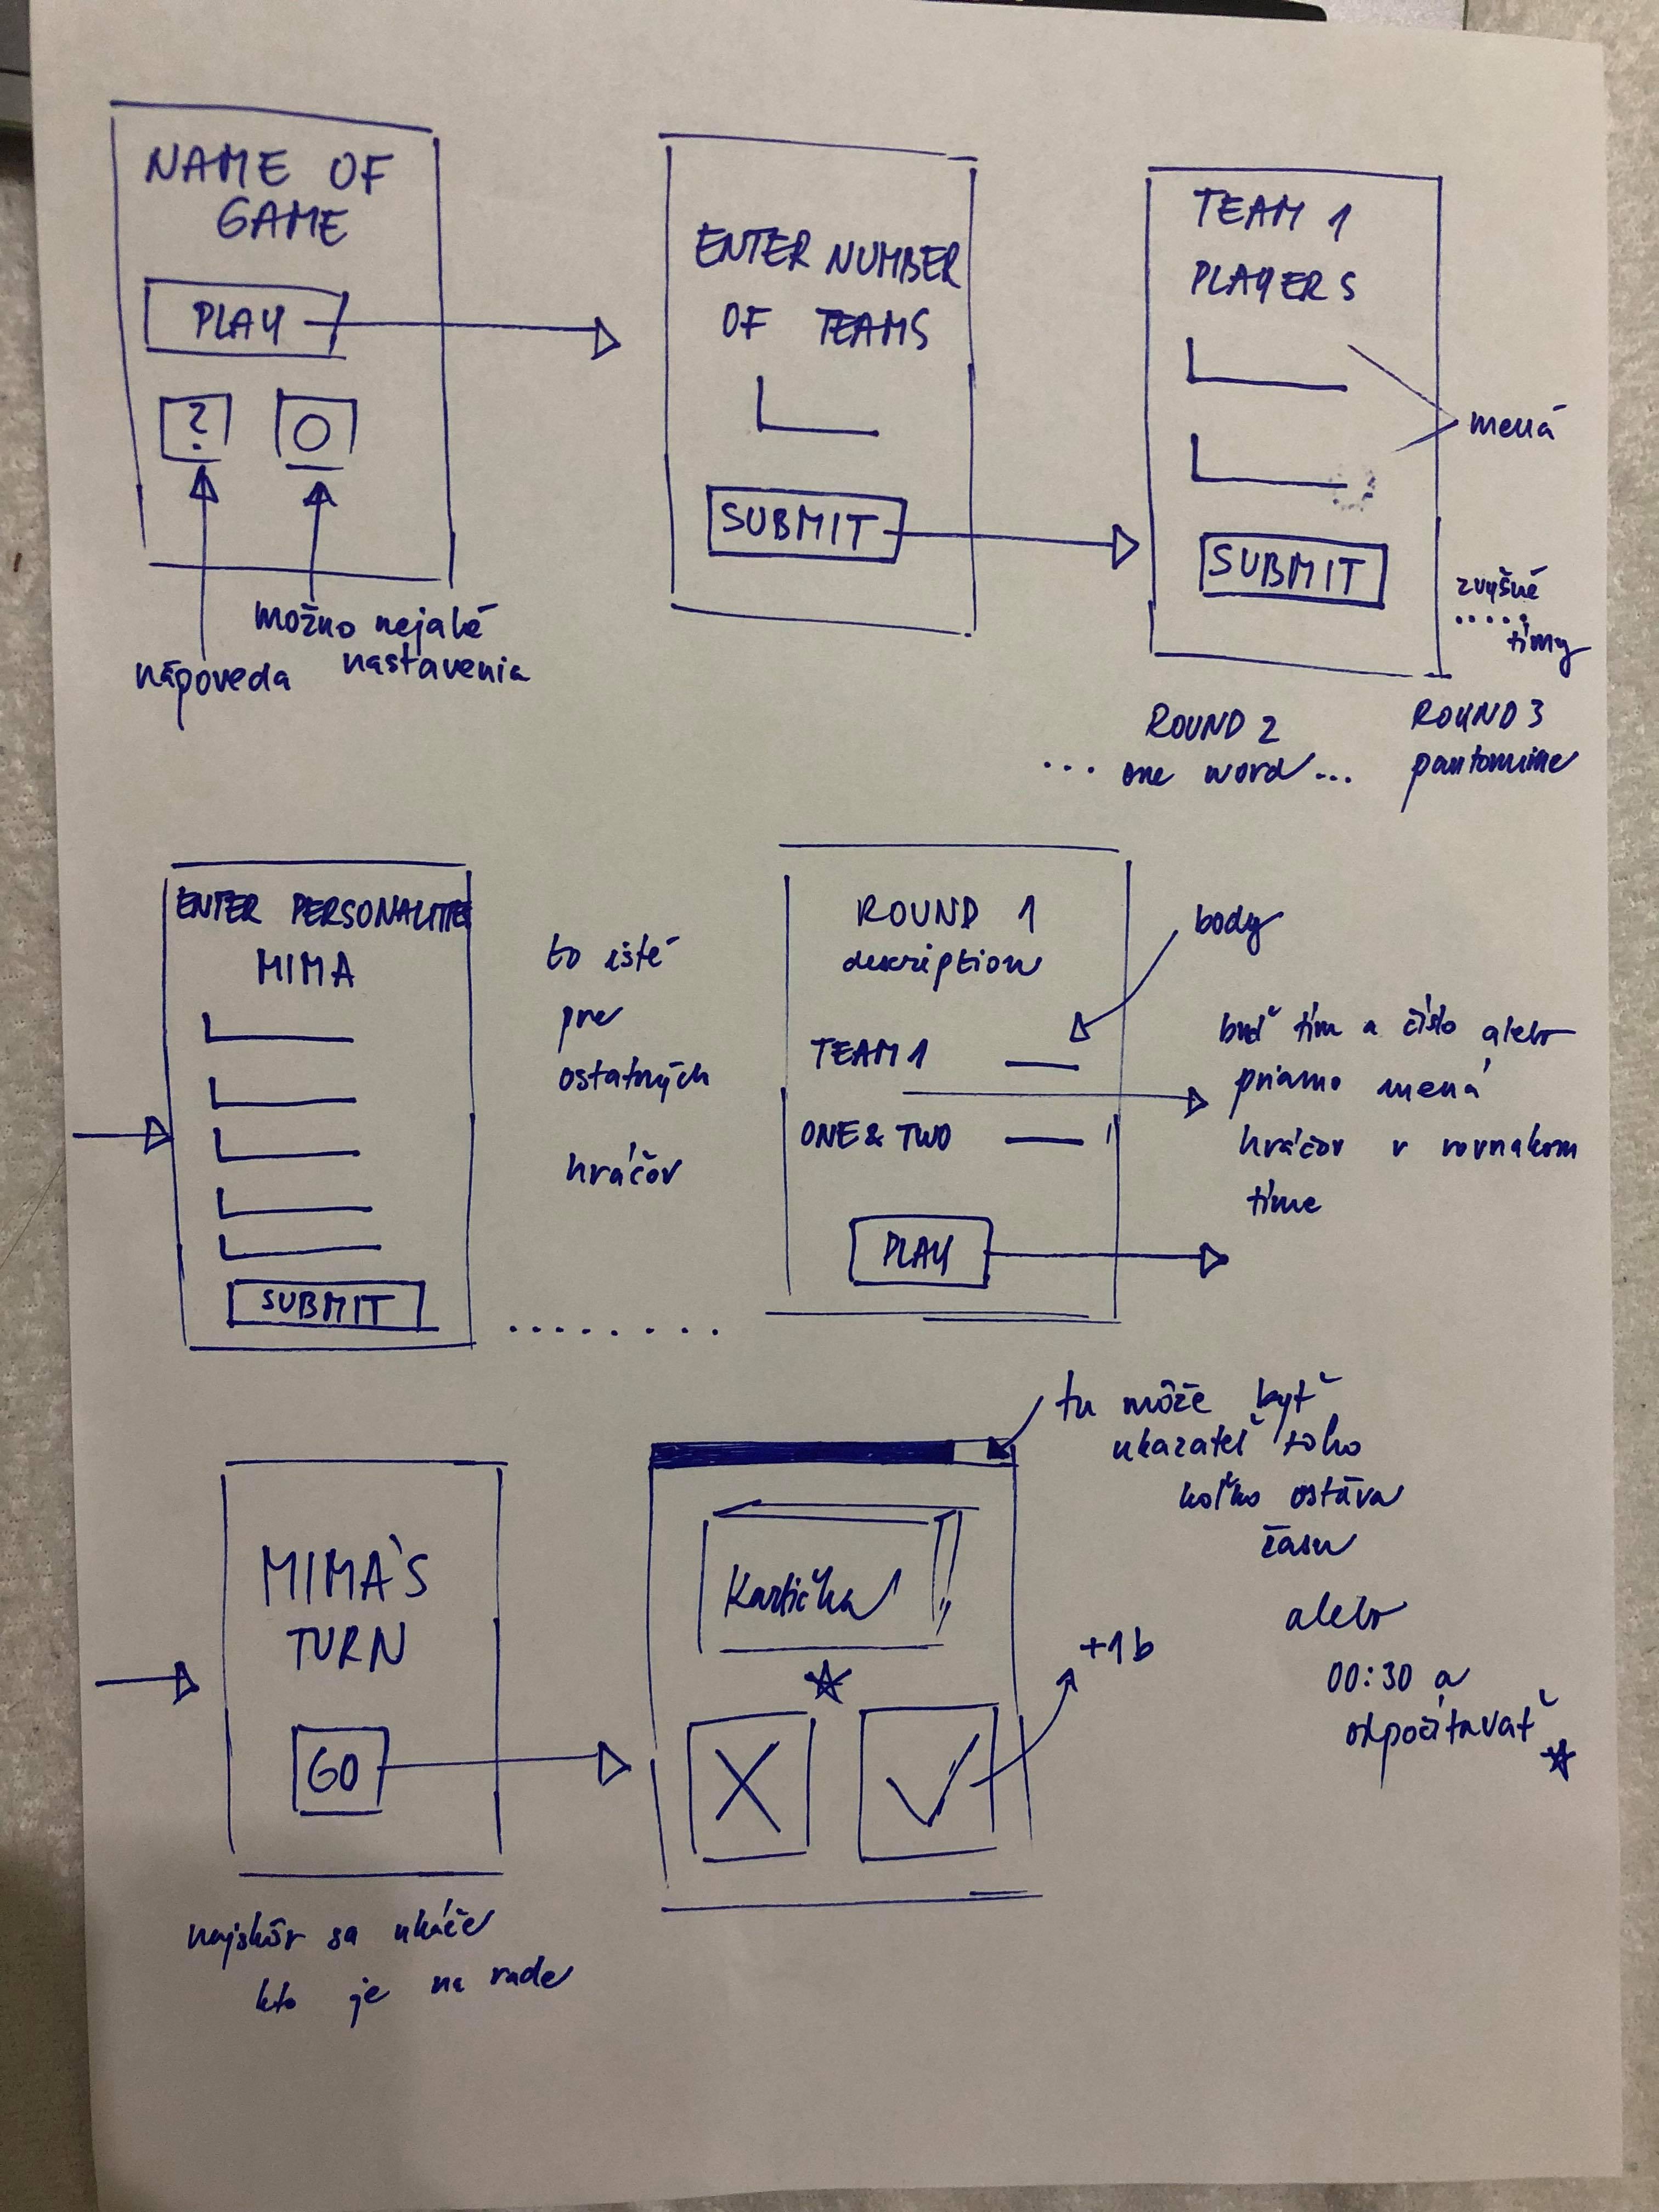 NAME OF
GAME
PLAY
?
nápoveda
možno nejaké
nastavenia
ENTER NUMBER
OF TEAMS
SUBMIT
TEAM 1
PLAYERS
mená
SUBMIT
zvyšné
.....
tímy
ROUND 2
... one word ...
ROUND 3
pantomime
ENTER PERSONALITIES
MIMA
SUBMIT
to isté
pre
ostatných
hráčov
........
ROUND 1
description
body
TEAM 1
ONE & TWO
PLAY
buď tím a číslo alebo
priamo mená
hráčov v rovnakom
tíme
MIMA'S
TURN
GO
najskôr sa ukáže
kto je na rade
Kartička
+1b
tu môže byť
ukazateľ toho
koľko ostáva
času
alebo
00:30 a
odpočítavať